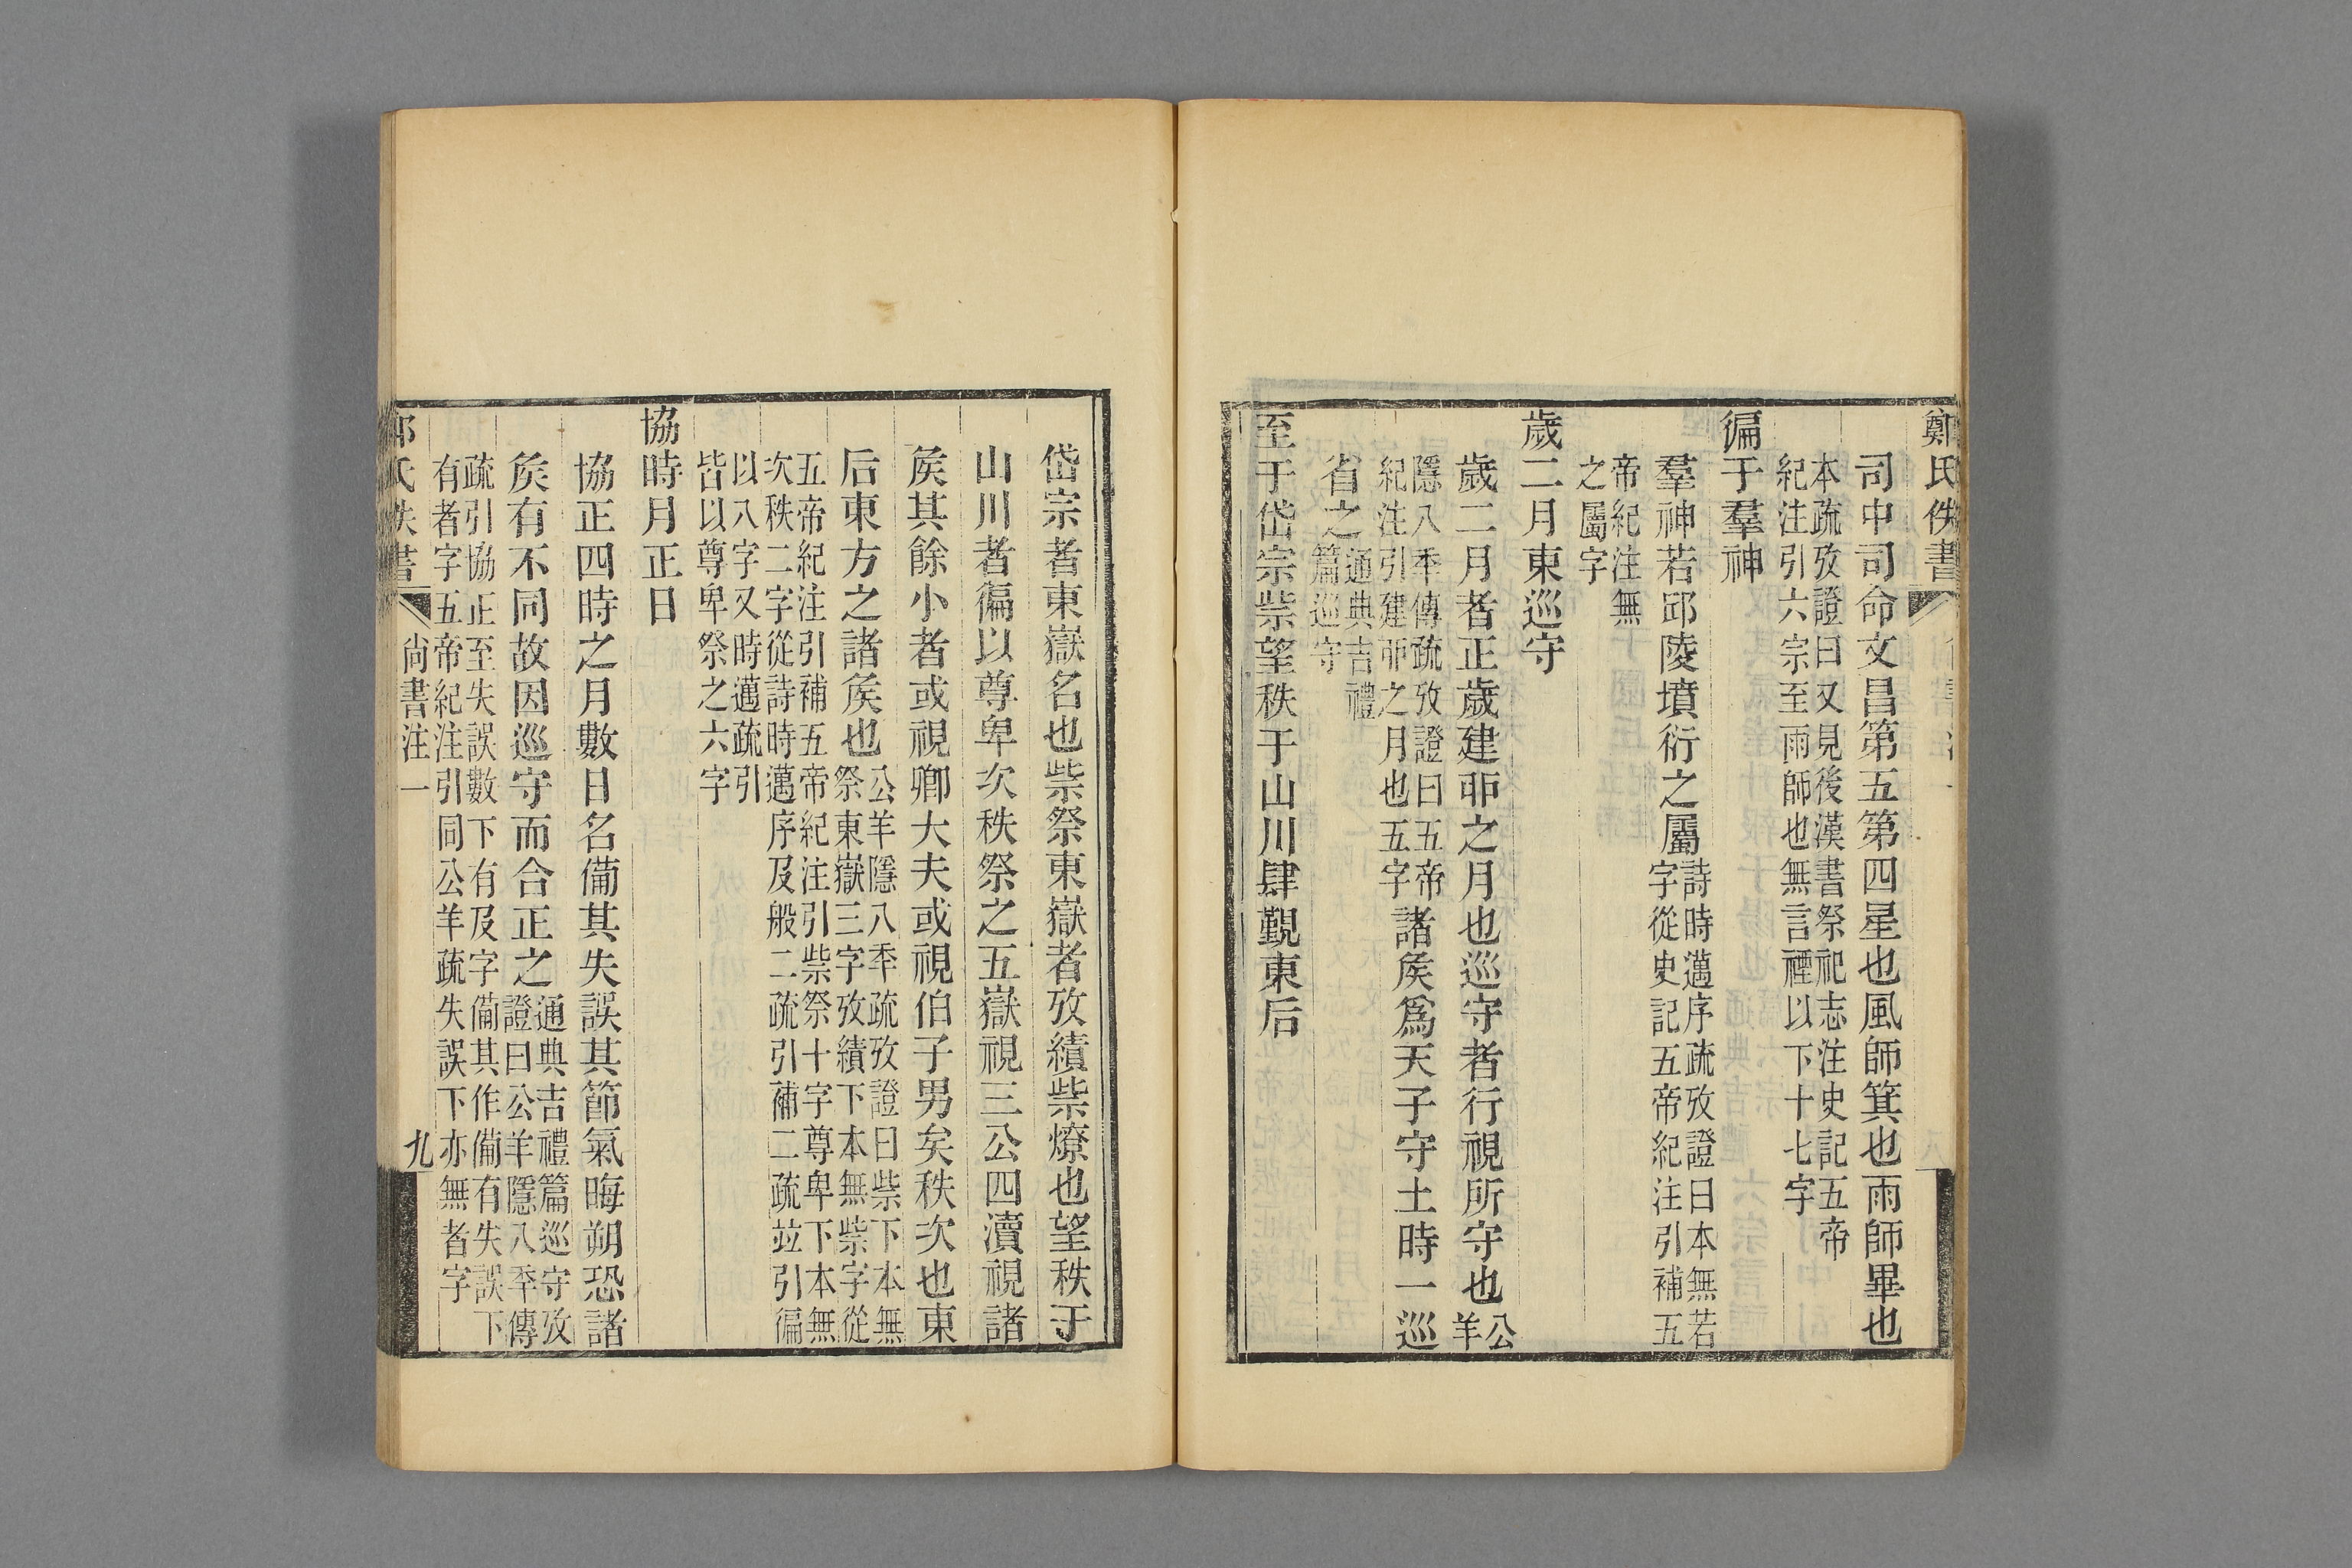 鄭氏佚書
司中司命文昌第五第四星也風師箕也雨師畢也
本疏攷證曰又見後漢書祭祀志注史記五帝
紀注引六宗至雨師也無言禋以下十七字
徧于羣神
羣神若邱陵墳衍之屬詩時邁序疏攷證曰本無若
字從史記五帝紀注引補五
帝紀注無
之屬字
歲二月東巡守
歲二月者正歲建丣之月也巡守者行視所守也公
羊
隱八秊傳疏攷證曰五帝
紀注引建丣之月也五字諸矦爲天子守土時一巡
省之通典吉禮
篇巡守
至于岱宗祡望秩于山川肆覲東后
岱宗者東嶽名也祡祭東嶽者攷績祡燎也望秩于
山川者徧以尊卑次秩祭之五嶽視三公四瀆視諸
矦其餘小者或視卿大夫或視伯子男矣秩次也東
后東方之諸矦也公羊隱八秊疏攷證曰祡下本無
祭東嶽三字攷績下本無祡字從
五帝紀注引補五帝紀注引祡祭十字尊卑下本無
次秩二字從詩時邁序及般二疏引補二疏竝引徧
以八字又時邁疏引
皆以尊卑祭之六字
協時月正日
協正四時之月數日名備其失誤其節氣晦朔恐諸
矦有不同故因巡守而合正之通典吉禮篇巡守攷
證曰公羊隱八秊傳
疏引協正至失誤數下有及字備其作備有失誤下
有者字五帝紀注引同公羊疏失誤下亦無者字
氏佚書 尙書注一 九